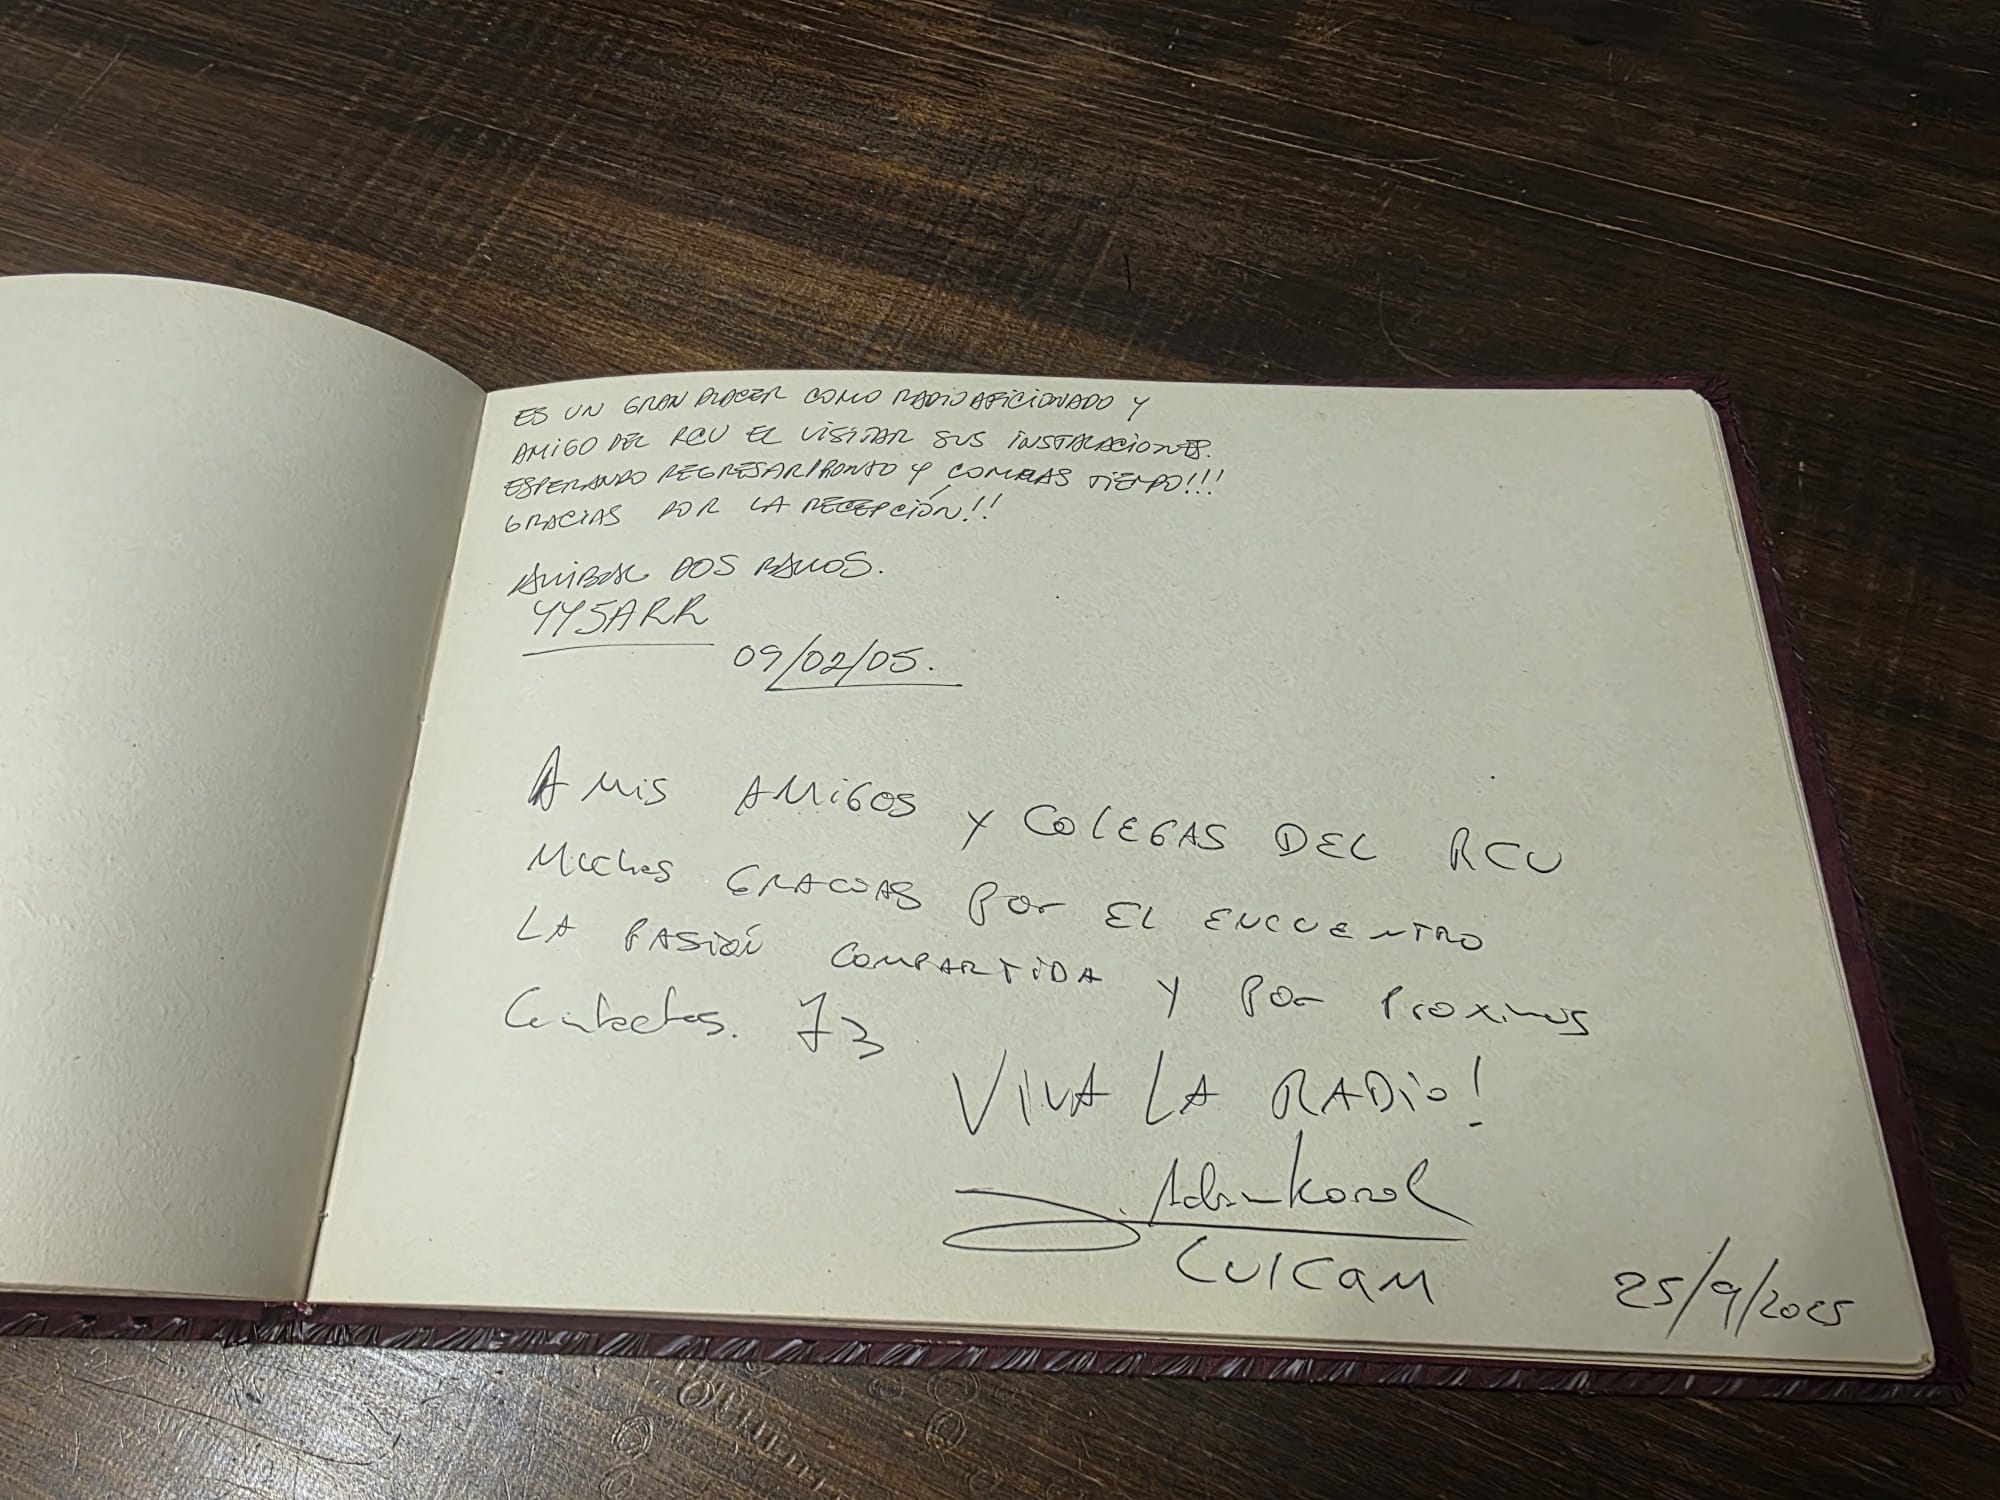 ES UN GRAN PLACER COMO RADIOAFICIONADO Y
AMIGO DEL RCU EL VISITAR SUS INSTALACIONES.
ESPERANDO REGRESAR PRONTO Y CON MAS TIEMPO!!!
GRACIAS POR LA RECEPCIÓN!!
ANIBAL DOS RAMOS.
YY5ARR
09/02/05.
A MIS AMIGOS Y COLEGAS DEL RCU
Muchas GRACIAS POR EL ENCUENTRO
LA PASIÓN COMPARTIDA Y POR PROXIMOS
Contactos. 73
VIVA LA RADIO!
Adrian Korol
25/9/2025